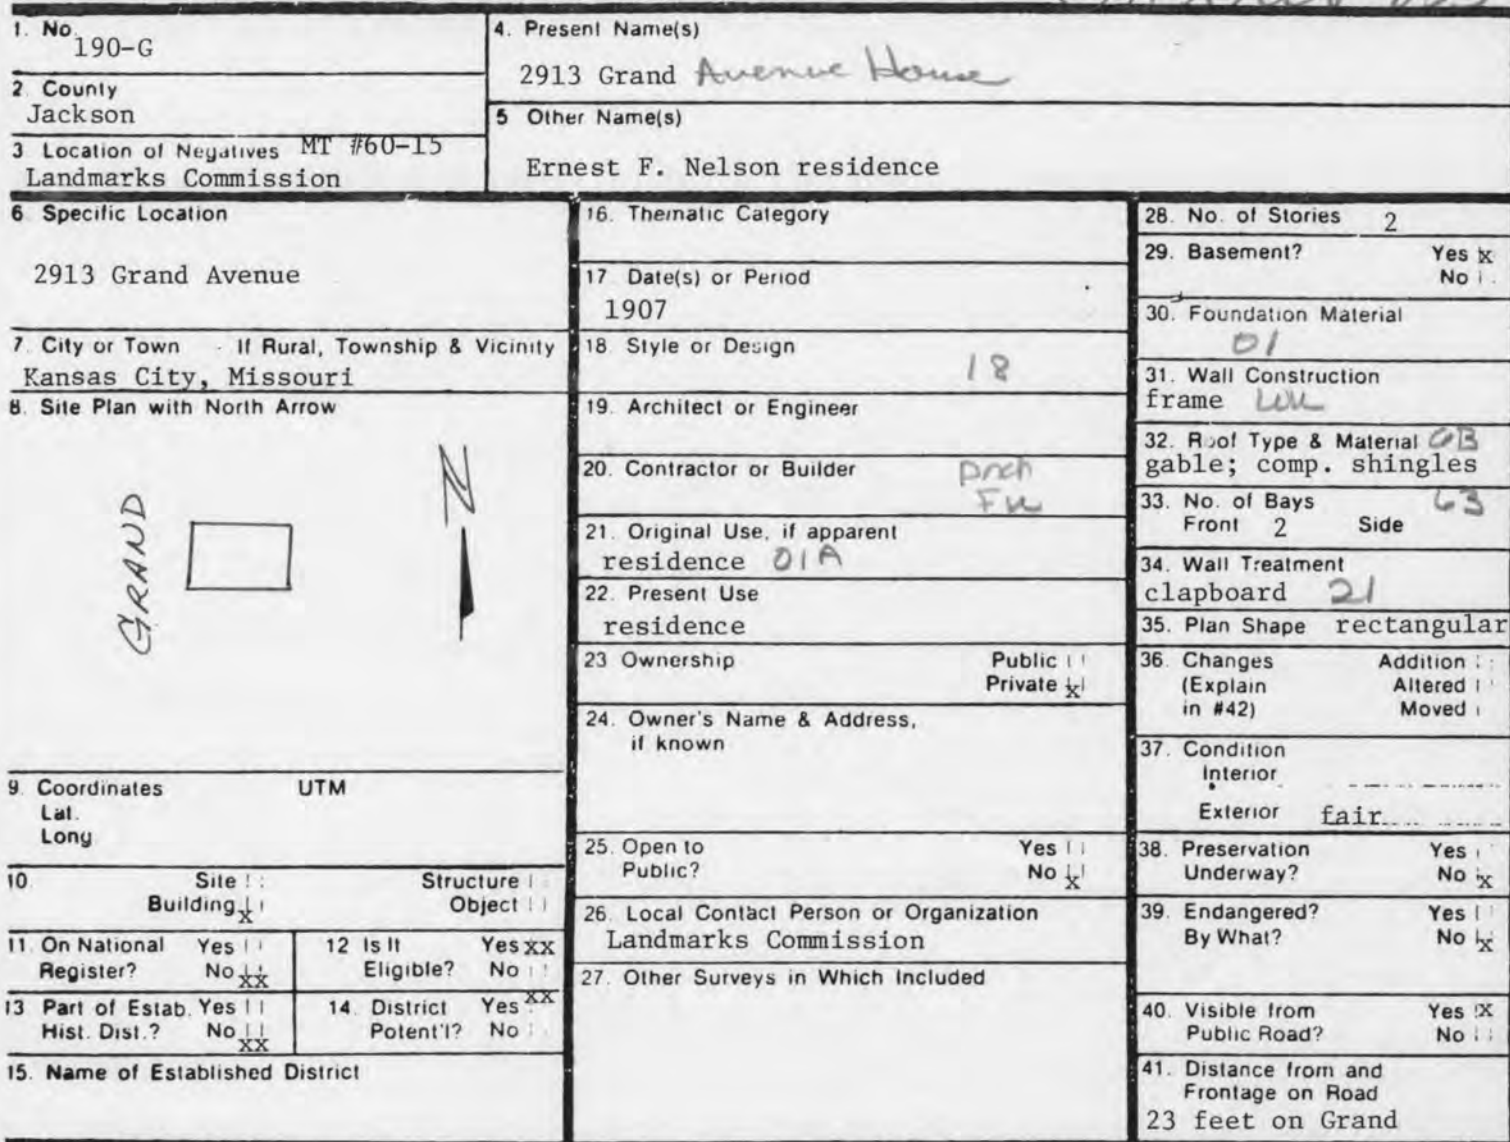 1. No.
190-G
2. County
Jackson
3 Location of Negatives MT #60-15
Landmarks Commission
4. Present Name(s)
2913 Grand Avenue House
5 Other Name(s)
Ernest F. Nelson residence
6. Specific Location
2913 Grand Avenue
7. City or Town If Rural, Township & Vicinity
Kansas City, Missouri
8. Site Plan with North Arrow
GRAND
N
9. Coordinates UTM
Lat.
Long
10. Site Structure
Building x Object
11. On National Yes
Register? No xx
12 Is It Yes xx
Eligible? No
13 Part of Estab. Yes
Hist. Dist.? No xx
14. District Yes xx
Potent'l? No
15. Name of Established District
16. Thematic Category
17. Date(s) or Period
1907
18. Style or Design
18
19. Architect or Engineer
20. Contractor or Builder
21. Original Use, if apparent
residence 01A
22. Present Use
residence
23 Ownership Public
Private x
24. Owner's Name & Address,
if known
25. Open to Yes
Public? No x
26. Local Contact Person or Organization
Landmarks Commission
27. Other Surveys in Which Included
28. No. of Stories 2
29. Basement? Yes x
No
30. Foundation Material
01
31. Wall Construction
frame
32. Roof Type & Material GB
gable; comp. shingles
33. No. of Bays 63
Front 2 Side
34. Wall Treatment
clapboard 21
35. Plan Shape rectangular
36. Changes Addition
(Explain Altered
in #42) Moved
37. Condition
Interior
Exterior fair
38. Preservation Yes
Underway? No x
39. Endangered? Yes
By What? No x
40. Visible from Yes x
Public Road? No
41. Distance from and
Frontage on Road
23 feet on Grand